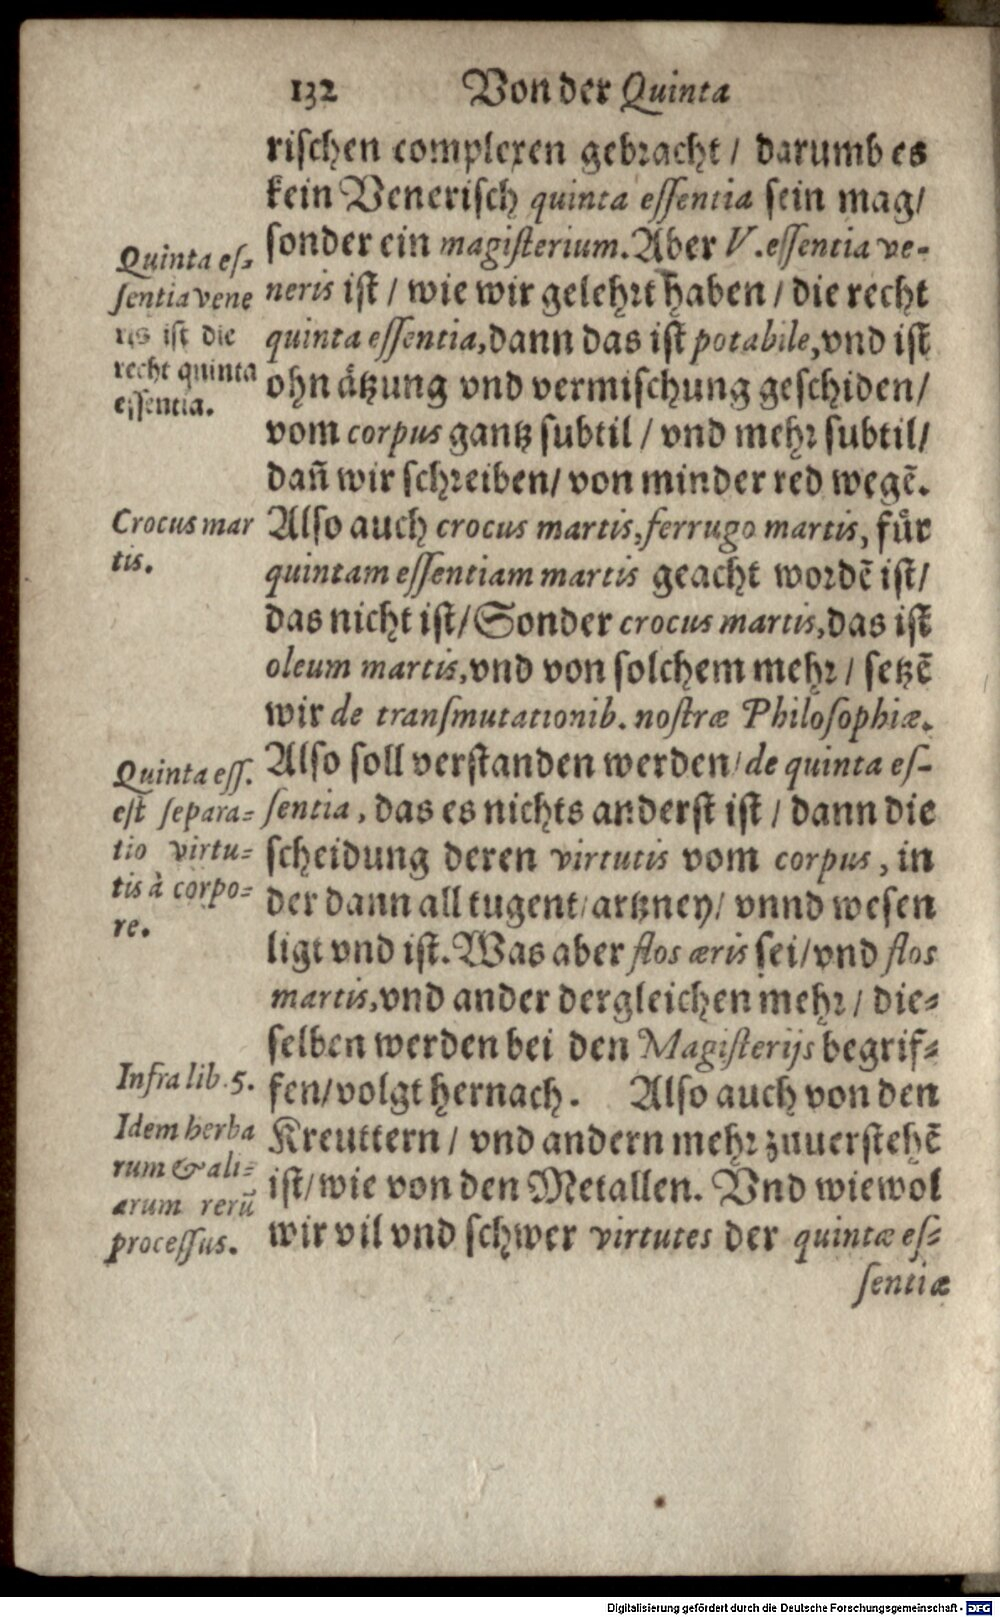 132 Von der Quinta
rischen complexen gebracht / darumb es
kein Venerisch quinta essentia sein mag/
sonder ein magisterium. Aber V. essentia ve-
neris ist / wie wir gelehrt haben / die recht
quinta essentia, dann das ist potabile, vnd ist
ohn ätzung vnd vermischung geschiden/
vom corpus gantz subtil / vnd mehr subtil/
dañ wir schreiben/ von minder red wegẽ.
Also auch crocus martis, ferrugo martis, für
quintam essentiam martis geacht wordẽ ist/
das nicht ist/ Sonder crocus martis, das ist
oleum martis, vnd von solchem mehr / setzẽ
wir de transmutationib. nostræ Philosophiæ.
Also soll verstanden werden/ de quinta es-
sentia, das es nichts anderst ist / dann die
scheidung deren virtutis vom corpus, in
der dann all tugent/ artzney/ vnnd wesen
ligt vnd ist. Was aber flos æris sei/ vnd flos
martis, vnd ander dergleichen mehr / die-
selben werden bei den Magisterijs begrif-
fen/ volgt hernach. Also auch von den
Kreuttern / vnd andern mehr zuuerstehẽ
ist/ wie von den Metallen. Vnd wiewol
wir vil vnd schwer virtutes der quintæ es-
sentiæ
Quinta es-
sentia vene
ris ist die
recht quinta
essentia.
Crocus mar
tis.
Quinta ess.
est separa-
tio virtu-
tis à corpo-
re.
Infra lib. 5.
Idem herba
rum & ali-
arum rerũ
processus.
Digitalisierung gefördert durch die Deutsche Forschungsgemeinschaft - DFG